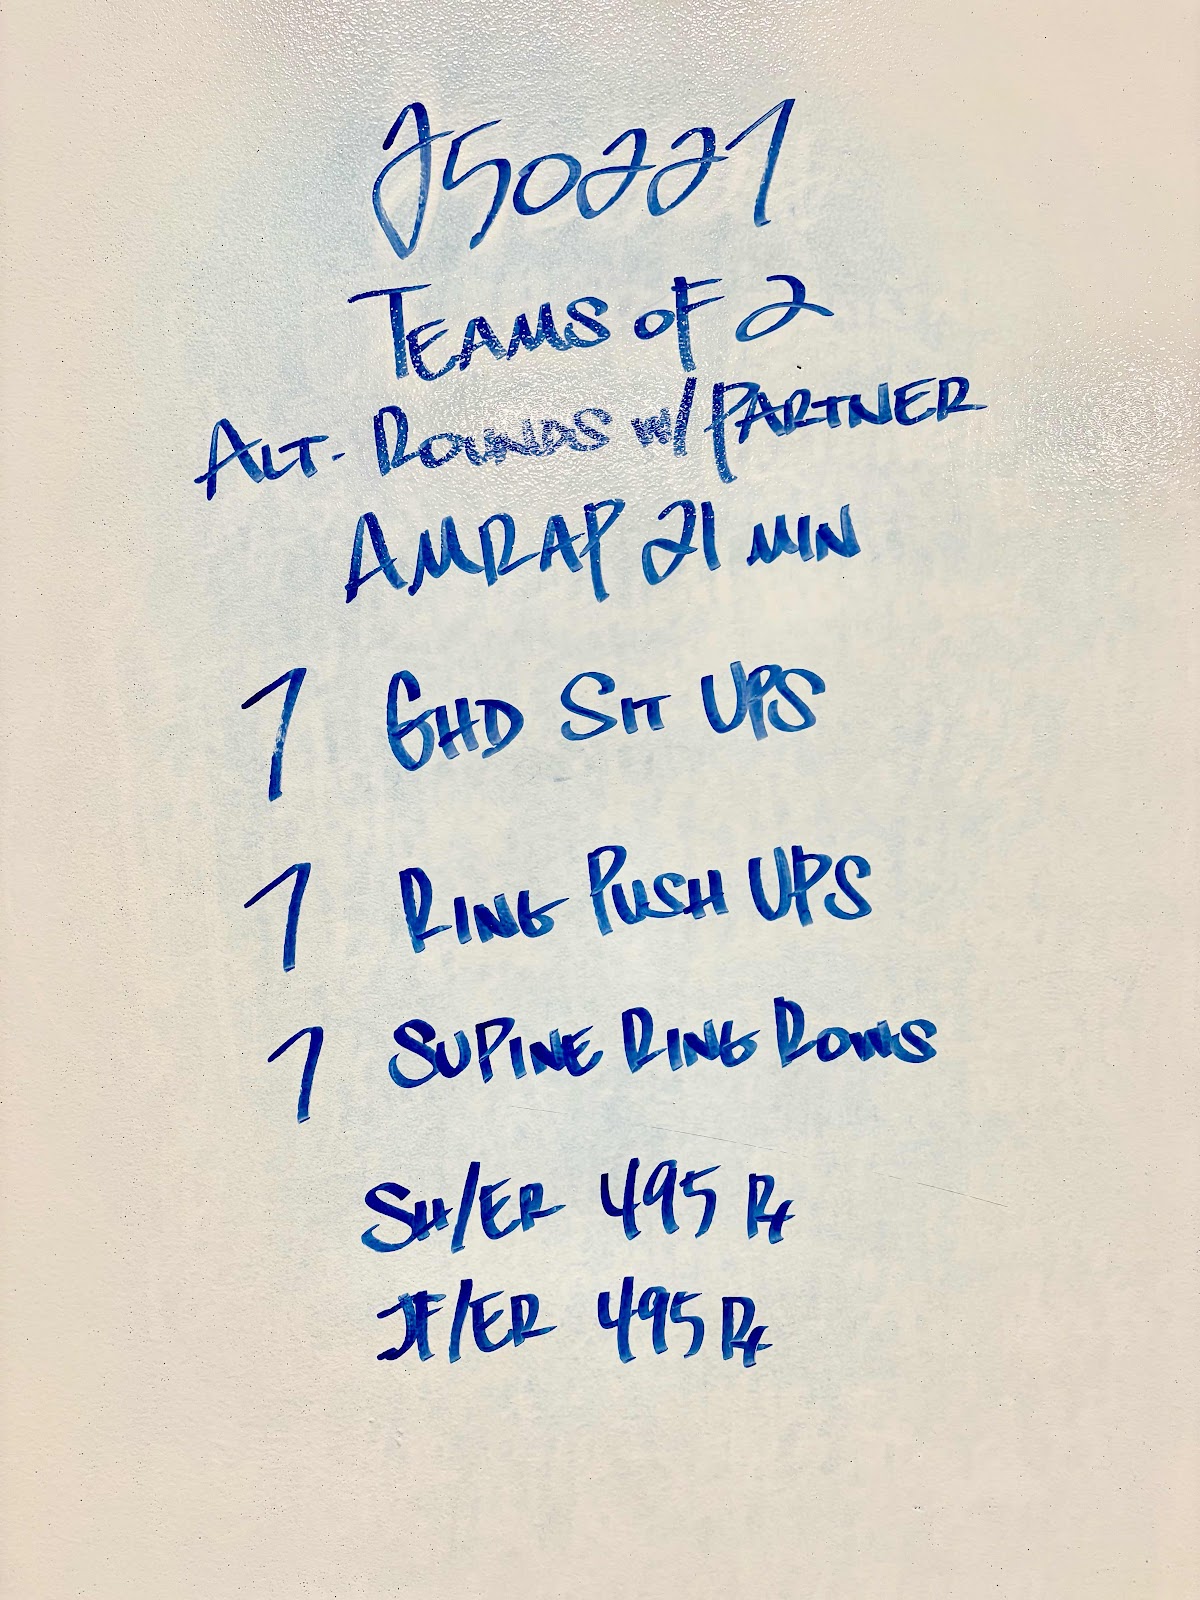 250227
TEAMS OF 2
ALT. ROUNDS W/ PARTNER
AMRAP 21 MIN
7 GHD SIT UPS
7 RING PUSH UPS
7 SUPINE RING ROWS
SH/ER 495 Rx
JF/ER 495 Rx